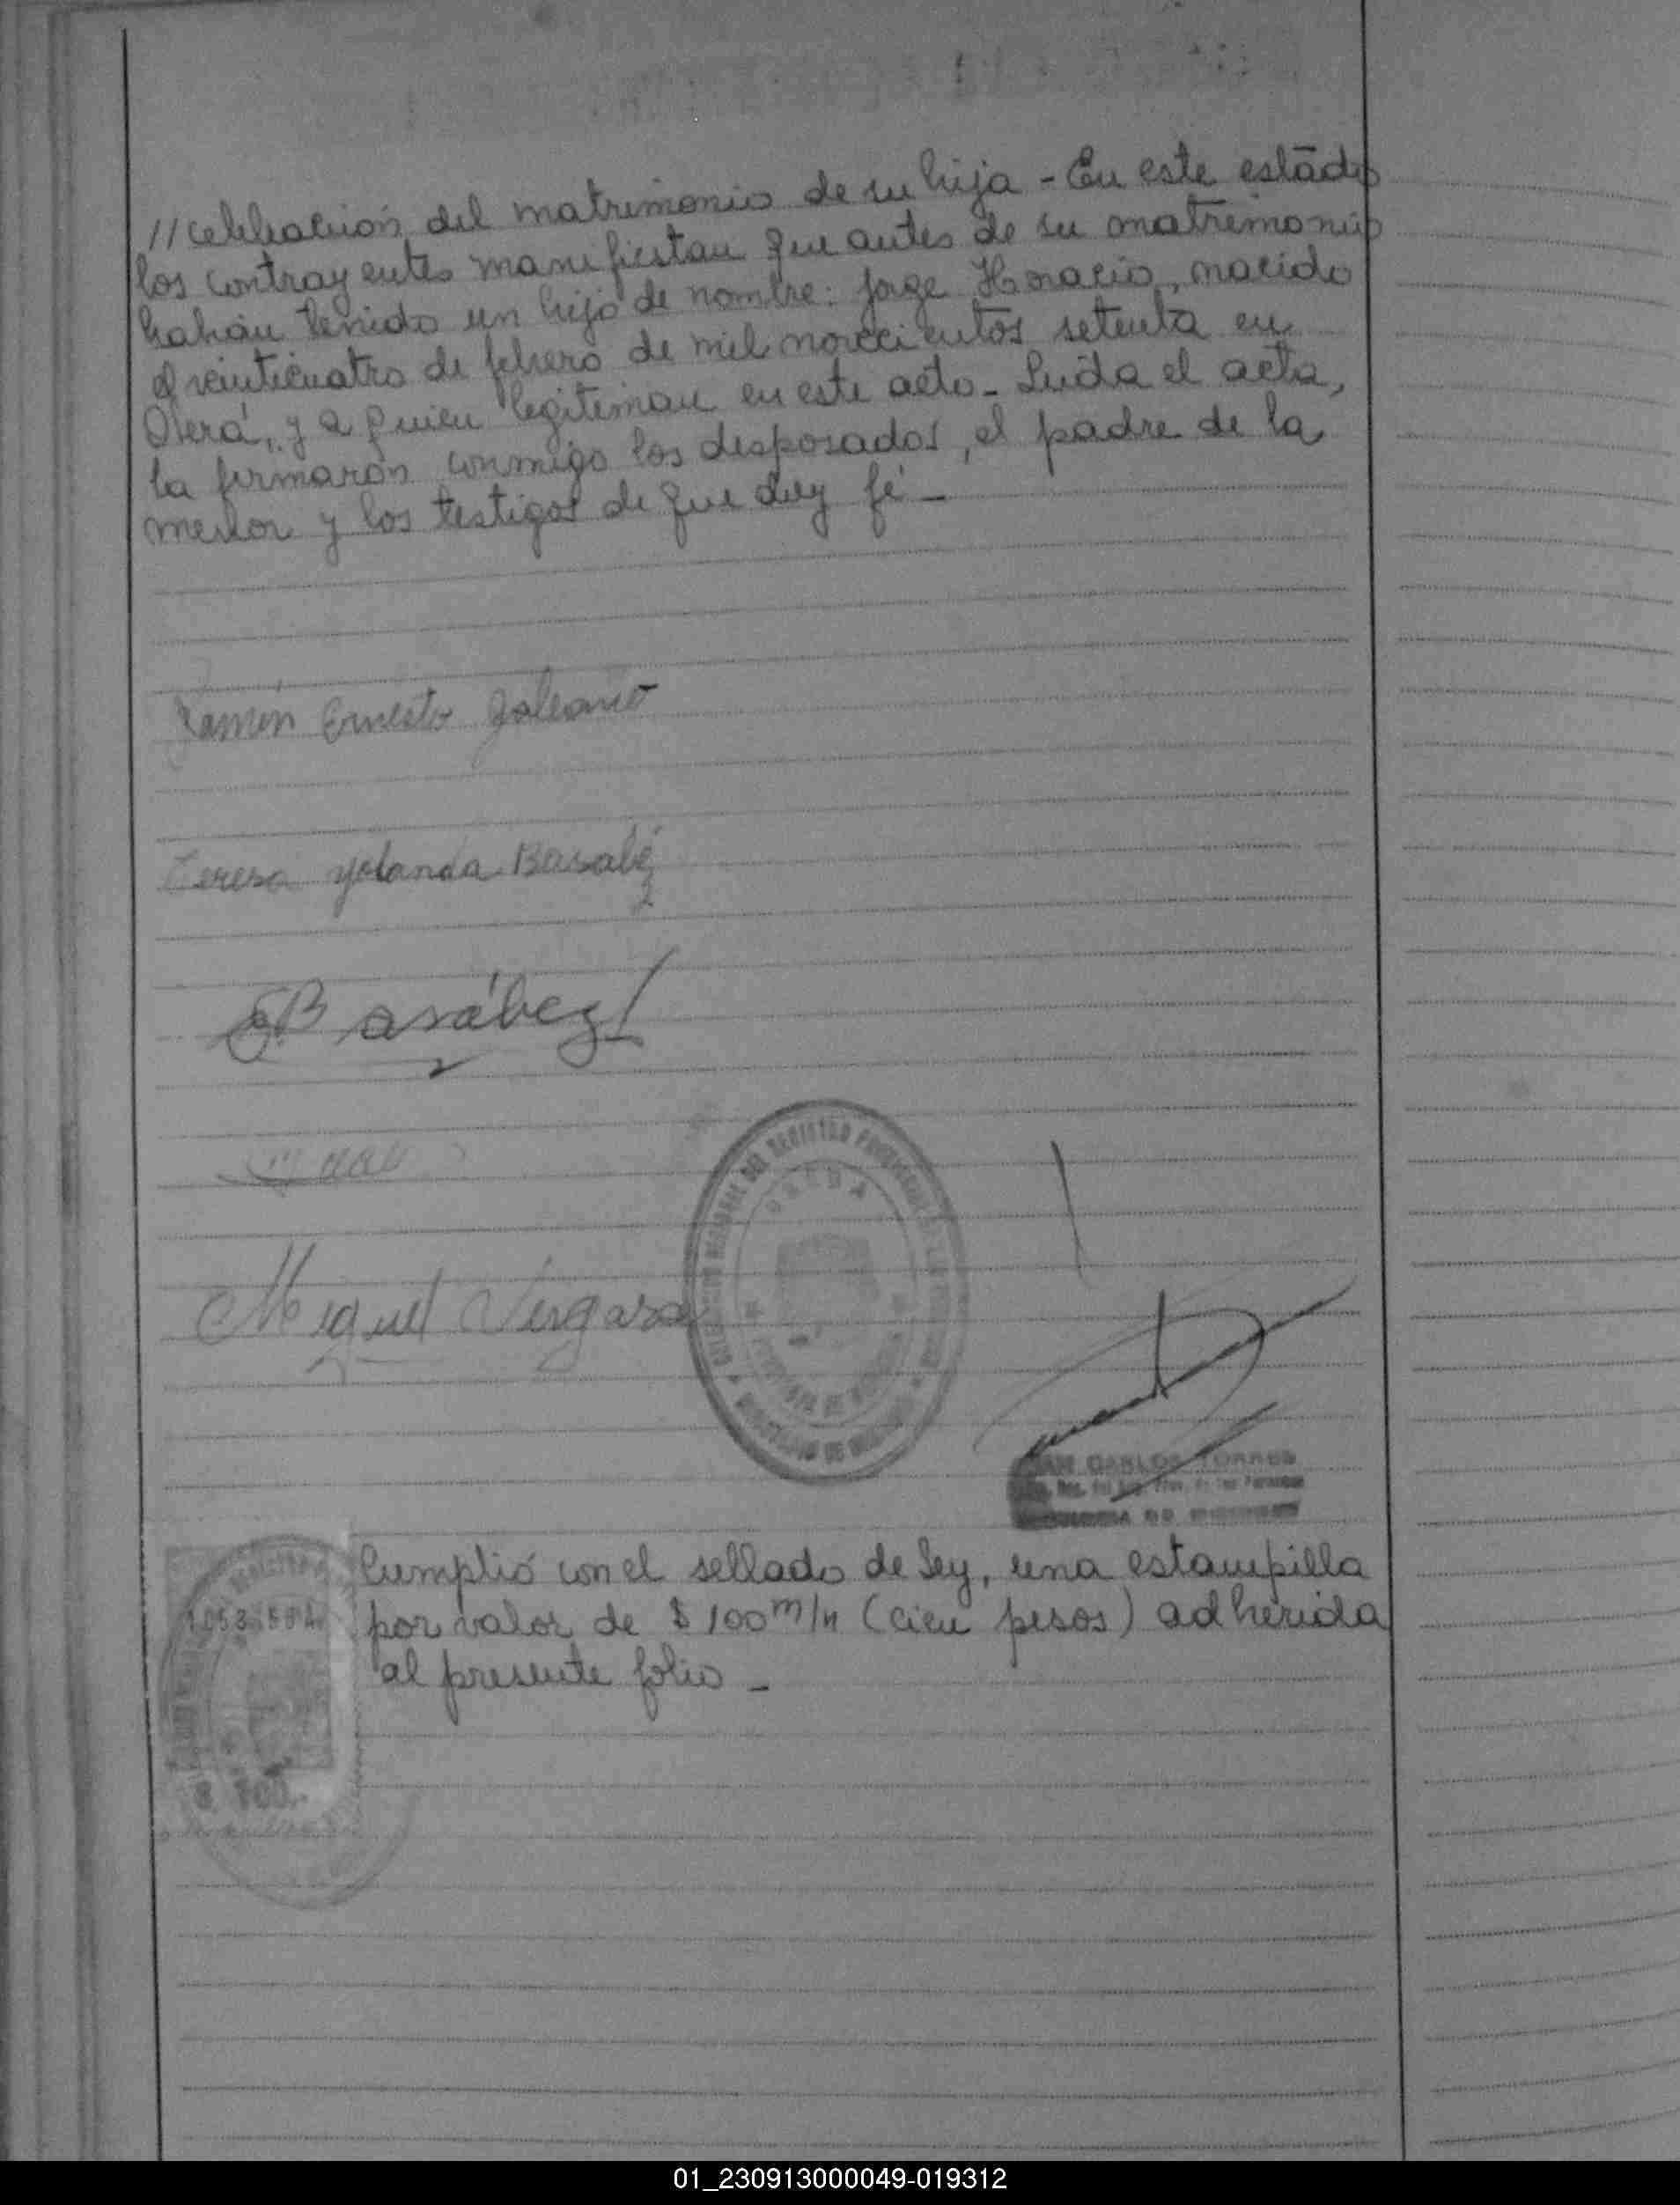 //celebración del matrimonio de su hija - En este estado
los contrayentes manifiestan que antes de su matrimonio
habían tenido un hijo de nombre: Jorge Horacio, nacido
el veinticuatro de febrero de mil novecientos setenta en
Oberá, y a quien legitiman en este acto - Leída el acta,
la firmaron conmigo los desposados, el padre de la
menor y los testigos de que doy fé -
Ramón Ernesto Galeano
Teresa Yolanda Basabez
Basábez
Miguel Vergara
OBERA
CARLOS TORRES
Cumplió con el sellado de ley, una estampilla
por valor de $ 100 m/n (cien pesos) adherida
al presente folio -
$ 100.-
01_230913000049-019312